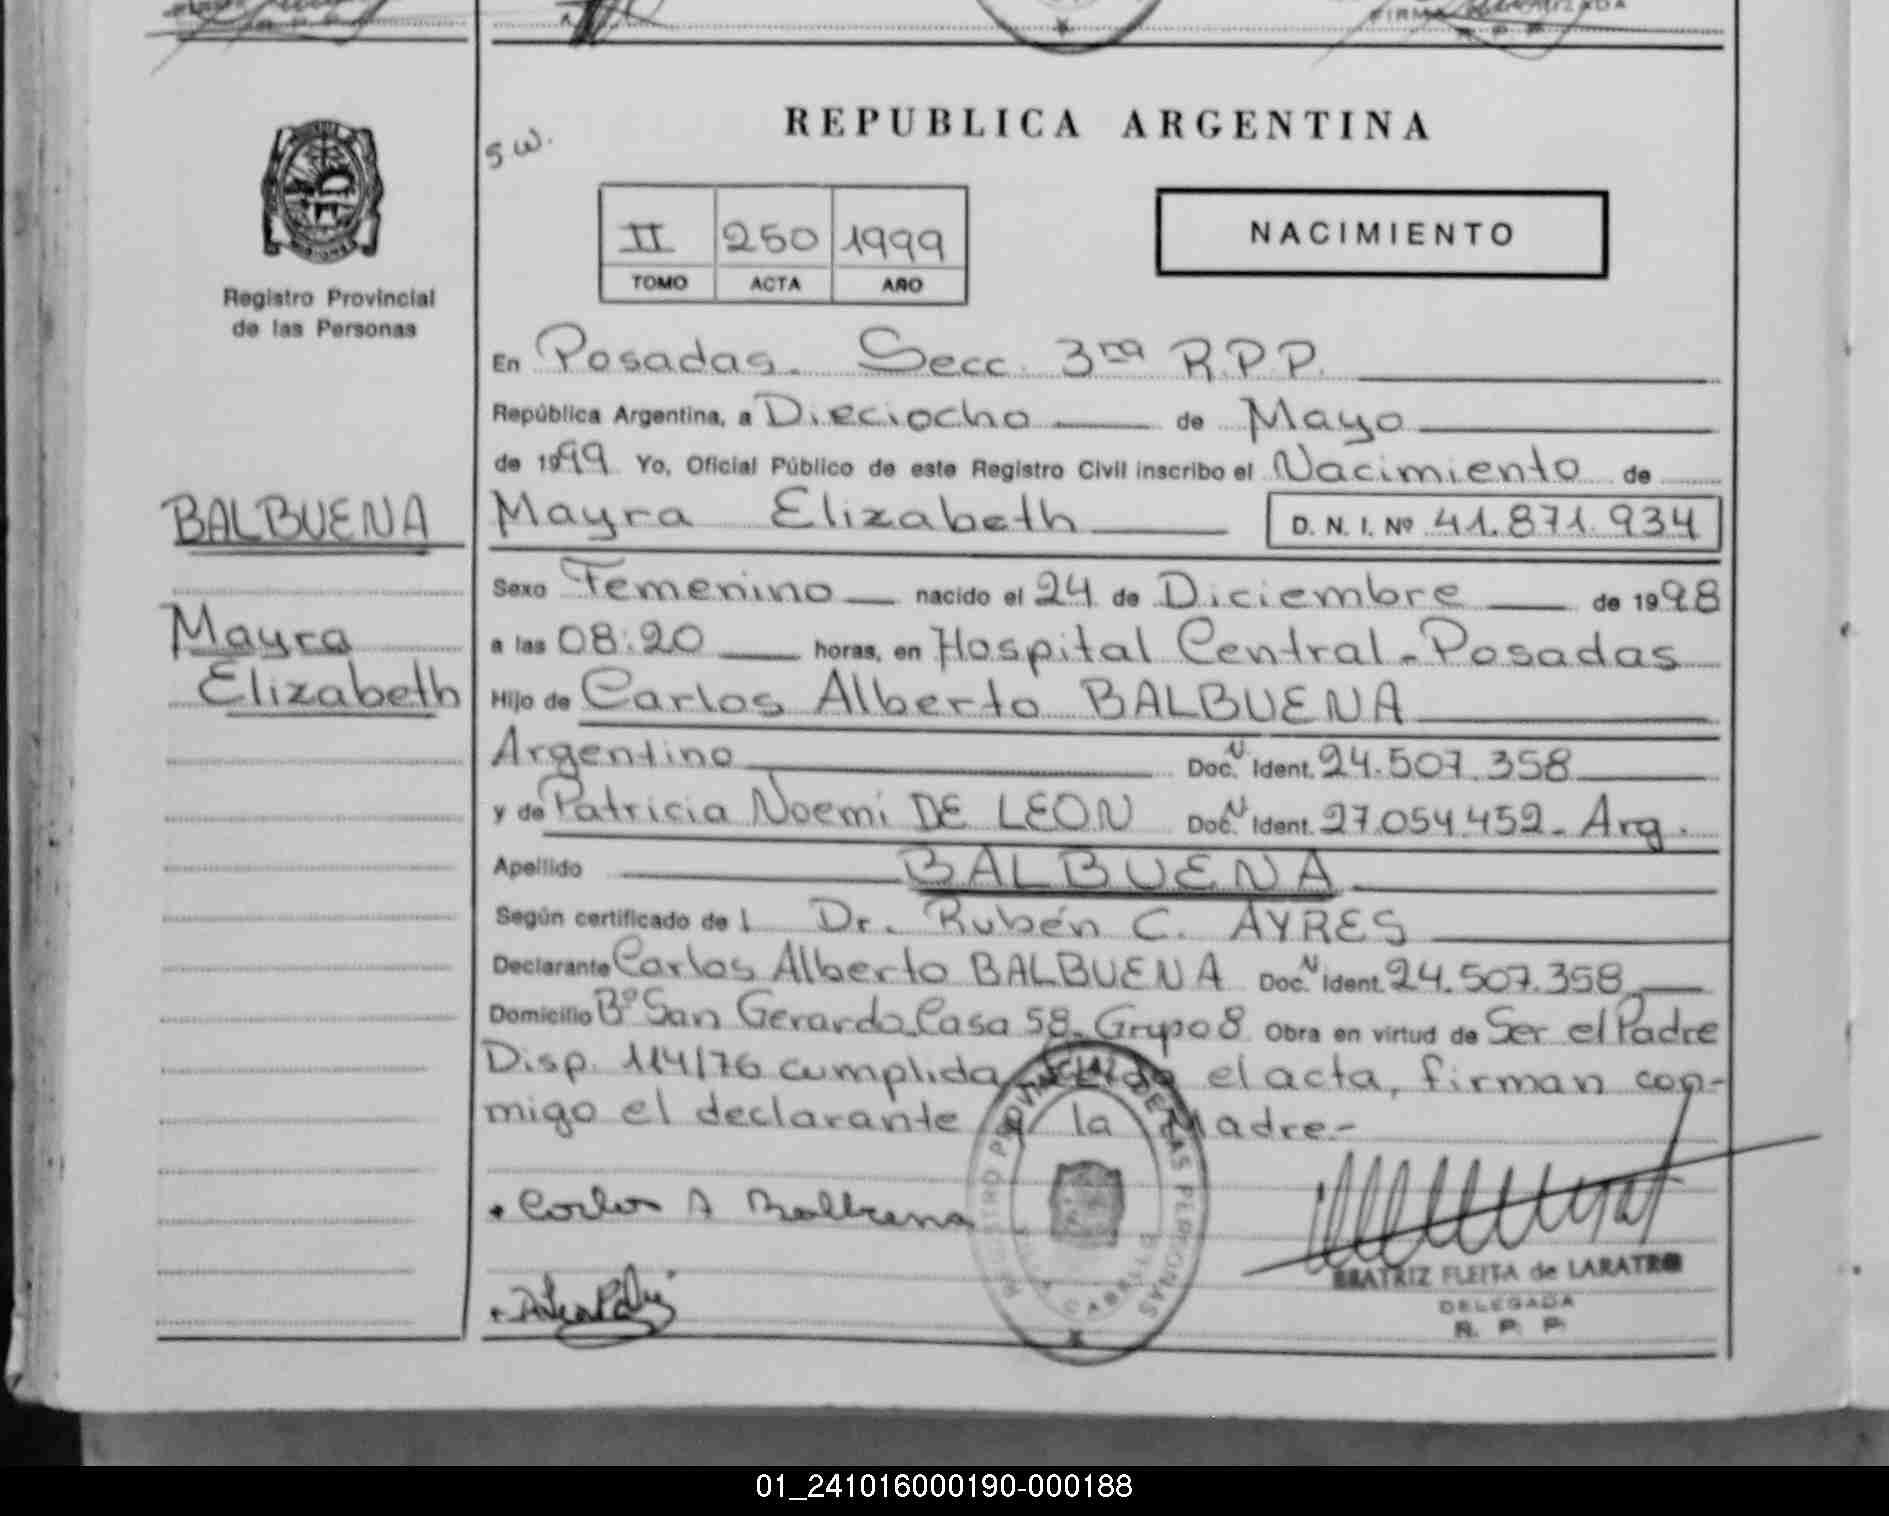 FIRMA AUTORIZADA
REPUBLICA ARGENTINA
S W.
II 250 1999
TOMO ACTA AÑO
NACIMIENTO
Registro Provincial
de las Personas
En Posadas. Secc. 3ra R.P.P.
República Argentina, a Dieciocho de Mayo
de 1999 Yo, Oficial Público de este Registro Civil inscribo el Nacimiento de
BALBUENA
Mayra Elizabeth D. N. I. Nº 41.871.934
Sexo Femenino nacido el 24 de Diciembre de 1998
Mayra
a las 08:20 horas, en Hospital Central - Posadas
Elizabeth
Hijo de Carlos Alberto BALBUENA
Argentino Doc. N Ident. 24.507.358
y de Patricia Noemi DE LEON Doc. N Ident. 27.054.452- Arg.
Apellido BALBUENA
Según certificado de l Dr. Rubén C. AYRES
Declarante Carlos Alberto BALBUENA Doc. N Ident. 24.507.358
Domicilio Bº San Gerardo Casa 58- Grupo 8 Obra en virtud de Ser el Padre
Disp. 114/76 cumplida el acta, firman con-
migo el declarante y la Madre.-
Carlos A Balbuena
REGISTRO PROVINCIAL DE LAS PERSONAS
VILLA CABELLO
BEATRIZ FLEITA de LARATRO
DELEGADA
R. P. P.
01_241016000190-000188